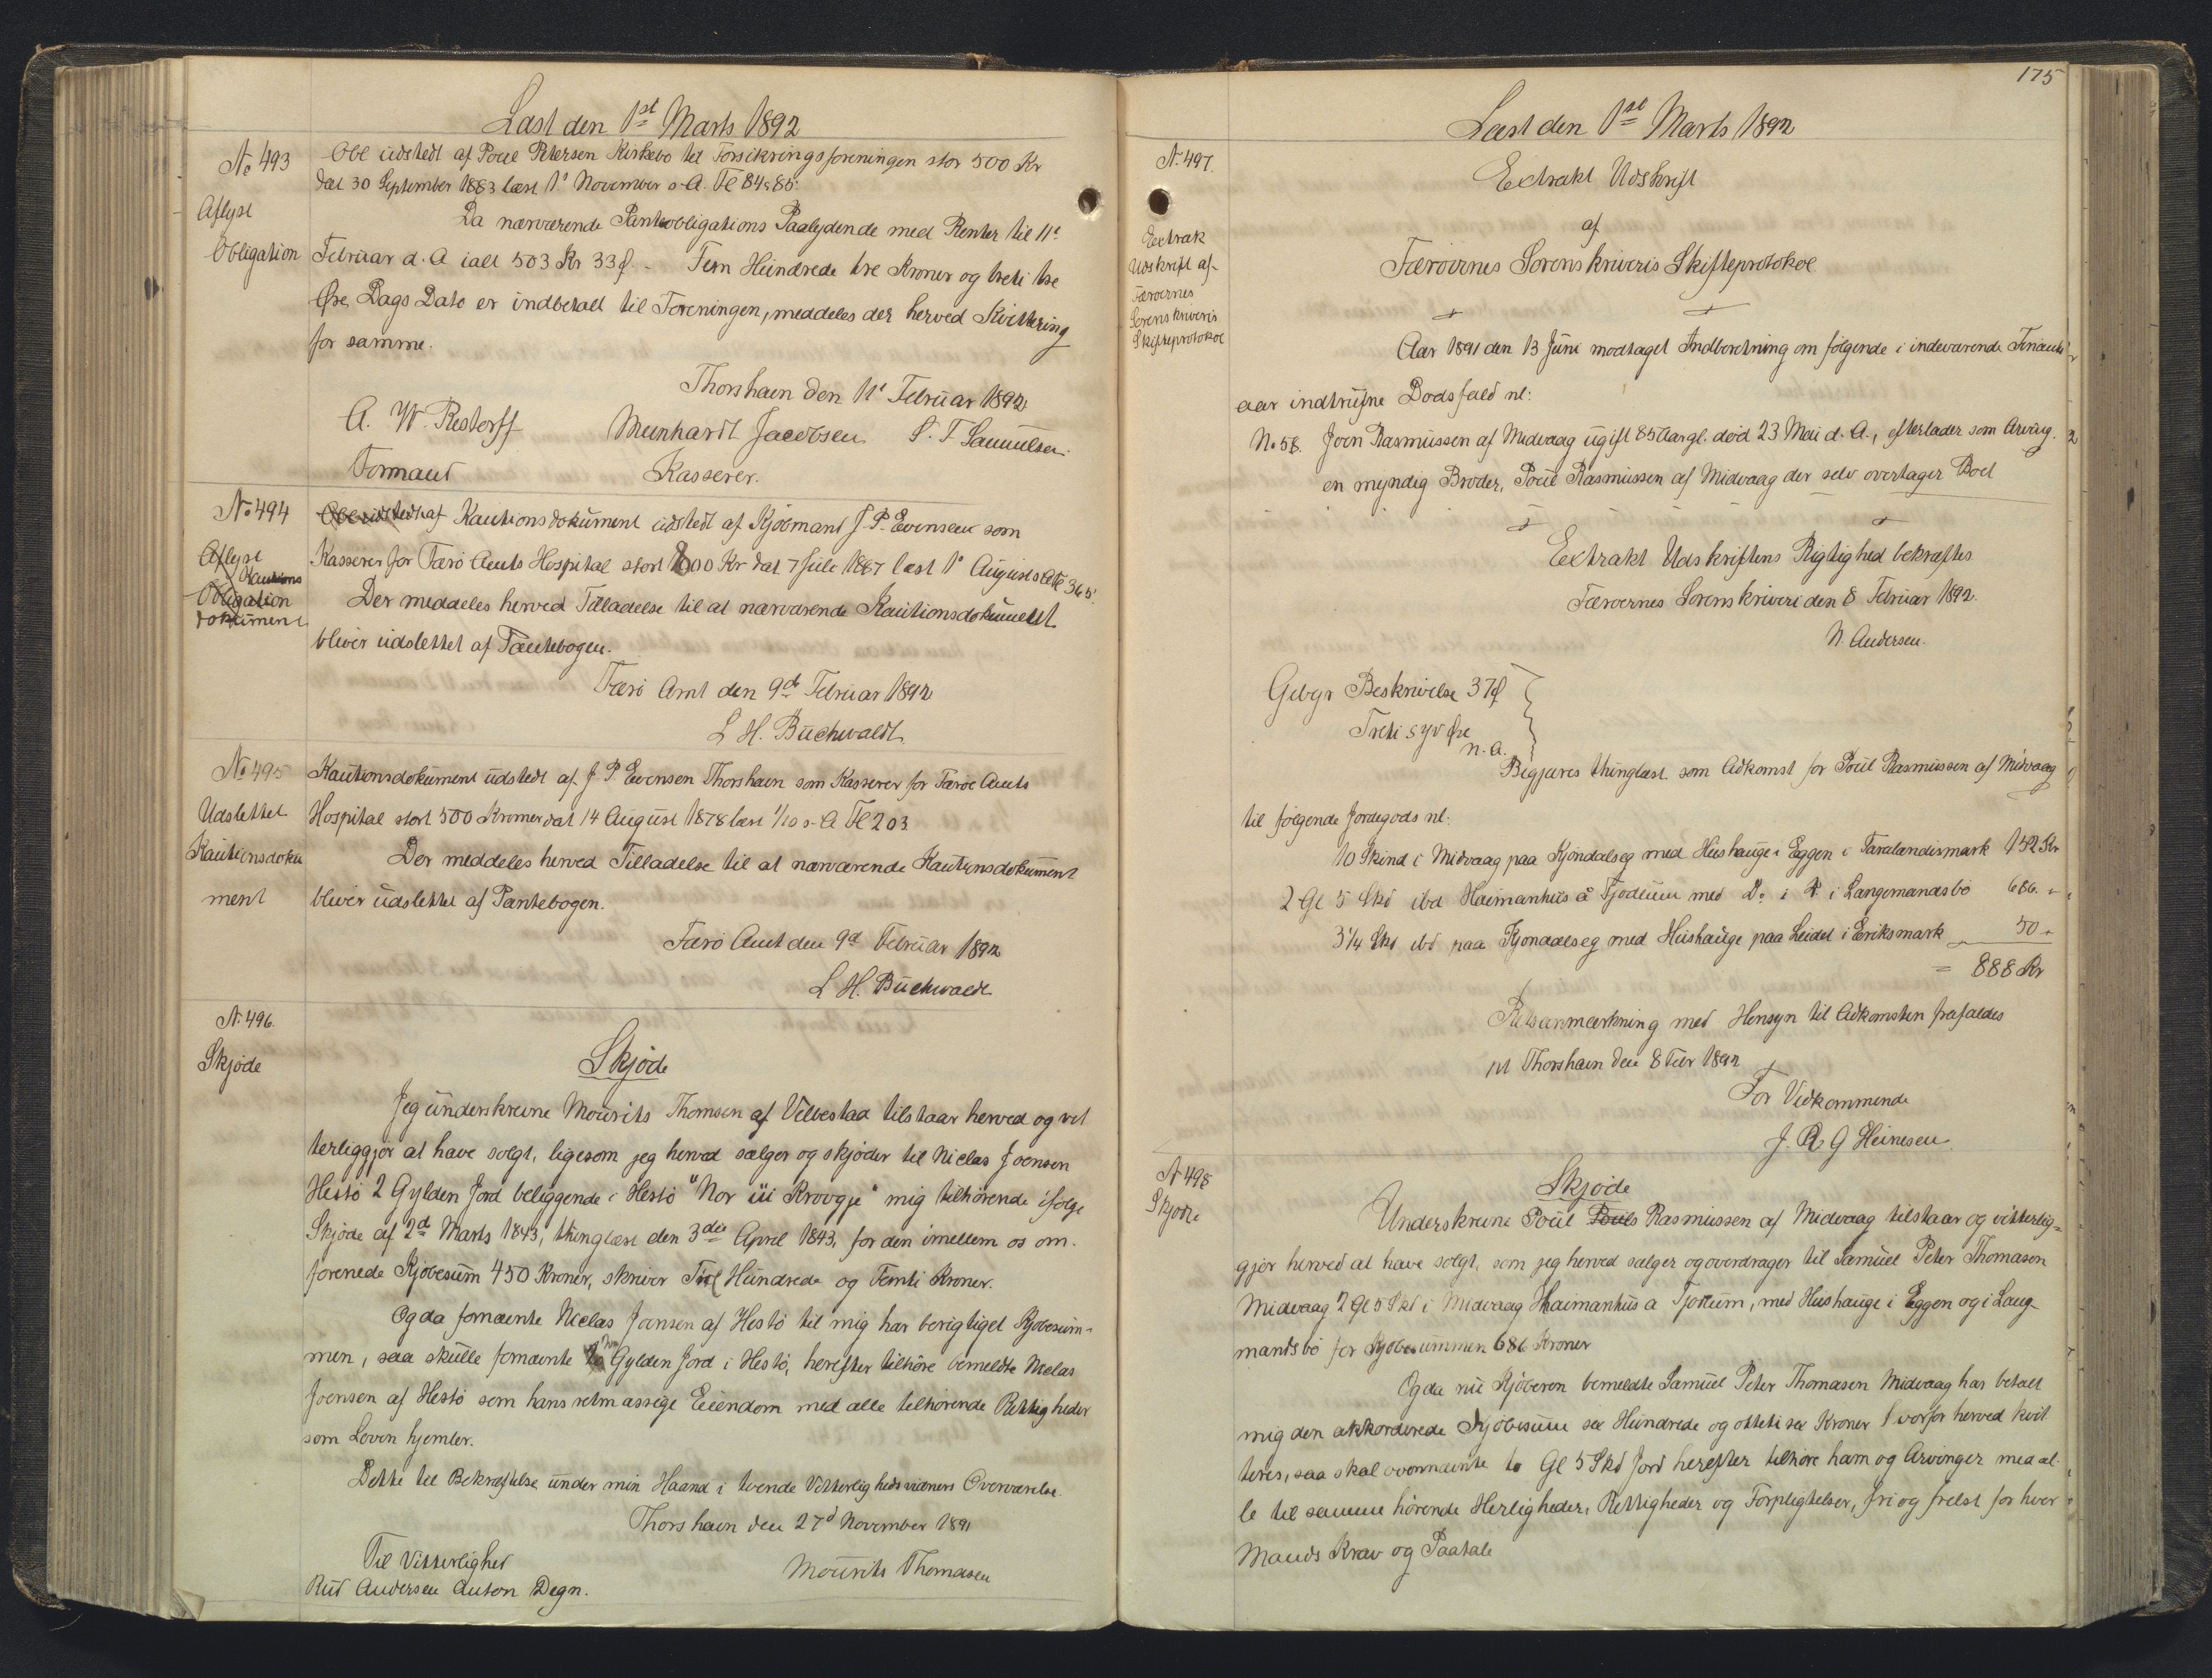 Læst den 1st Marts 1892
No 493
Obl udstedt af Poul Petersen Kirkebø til Forsikringsforeningen stor 500 Kr
dat 30 September 1883 læst 1' November s. A. Fl 84 & 85:
Aflyst
Obligation
Da nærværende Panteobligations Paalydende med Renter til 11'
Februar d. A ialt 503 Kr 33 Ø. - Fem Hundrede tre Kroner og treti tre
Øre, Dags Dato er indbetalt til Foreningen, meddeles der herved Kvittering
for samme.
Thorshavn den 11' Februar 1892
A. W. Restorff Meinhardt Jacobsen S. F. Samuelsen
Formand Kasserer.
No 494
Obl udstedt af Kautionsdokument udstedt af Kjøbmand J. P. Evensen som
Aflyst
Kautions
Obligation
dokument
Kasserer for Færø Amts Hospital stort 800 Kr dat 7 Juli 1887 læst 1' August s A Fl 365.
Der meddeles herved Tilladelse til at nærværende Kautionsdokument
bliver udslettet af Pantebogen.
Færø Amt den 9d Februar 1892
L H. Buchwaldt
No 495
Udslettet
Kautionsdoku
ment
Kautionsdokument udstedt af J. P. Evensen Thorshavn som Kasserer for Færøe Amts
Hospital stort 500 Kroner dat 14 August 1878 læst 1/10 s. A Fl 203
Der meddeles herved Tilladelse til at nærværende Kautionsdokument
bliver udslettet af Pantebogen.
Færø Amt den 9d Februar 1892
L H. Buchwaldt
N. 496.
Skjøde
Skjøde
Jeg underskrevne Mourits Thomsen af Velbestad tilstaar herved og vit
terliggjør at have solgt, ligesom jeg herved sælger og skjøder til Niclas Joensen
Hestø 2 Gylden Jord beliggende i Hestø "Nor üi Krovgje" mig tilhørende ifølge
Skjøde af 2d Marts 1843, thinglæst den 3die April 1843, for den imellem os om.
forenede Kjøbesum 450 Kroner, skriver Fire Hundrede og Femti Kroner.
Og da fornævnte Niclas Joensen af Hestø til mig har berigtiget Kjøbesum-
men, saa skulle fornævnte to Gylden Jord i Hestø, herefter tilhøre bemeldte Niclas
Joensen af Hestø som hans retmæssige Eiendom med alle tilhørende Rettigheder
som Loven hjemler.
Dette til Bekræftelse under min Haand i tvende Vitterlighedsvidners Overværelse.
Thorshavn den 27d November 1891
Til Vitterlighed
Mourits Thomasen
Rud Andersen Anton Degn.
175
Læst den 1st Marts 1892
N. 497.
Extrakt Udskrift
af
Extrak
Udskrift af
Færøernes
Sorenskriveris
Skifteprotokol
Færøernes Sorenskriveris Skifteprotokol
Aar 1891 den 13 Juni modtaget Indberetning om følgende i indeværende Finants
aar indtrufne Dødsfald nl:
No 58. Joen Rasmussen af Midvaag ugift 85 Aar gl. død 23 Mai d. A., efterlader som Arving.
en myndig Broder, Poul Rasmussen af Midvaag der selv overtager Boet
Extrakt Udskriftens Rigtighed bekræftes
Færøernes Sorenskriveri den 8 Februar 1892.
N. Andersen.
Gebyr Beskrivelse 37 Ø
Treti syv Øre
n. a.
Begjæres thinglæst som Adkomst for Poul Rasmussen af Midvaag
til følgende Jordegods nl:
10 Skind i Midvaag paa Kjøndalseg med Hushauge i Eggen i Taralandismark 152 Kr
2 Gl 5 Skd ibd Haimanhus å Tjødum med Do i & i Langemandsbø 686. "
3 1/4 Skd ibd paa Kjøndalseg med Hushauge paa Leidet i Eriksmark 50 "
= 888 Kr
Retsanmærkning med Hensyn til Adkomsten frafaldes
pt Thorshavn den 8 Febr 1892
For Vedkommende
J. R. G Heinesen
N 498
Skjøde
Skjøde
Underskrevne Poul Pouls Rasmussen af Midvaag tilstaar og vitterlig=
gjør herved at have solgt, som jeg herved sælger og overdrager til Samuel Peter Thomasen
Midvaag 2 Gl 5 Skd i Midvaag Haimanhus a Tjødum, med Hushauge i Eggen og i Lang-
mandsbø for Kjøbesummen 686 Kroner
Og da nu Kjøberen bemeldte Samuel Peter Thomasen Midvaag har betalt
mig den akkorderede Kjøbesum sex Hundrede og otteti sex Kroner hvorfor herved kvit
teres, saa skal ovennævnte to Gl 5 Skd Jord herefter tilhøre ham og Arvinger med al-
le til samme hørende Herligheder, Rettigheder og Forpligtelser, fri og frelst for hver
Mands Krav og Paatale